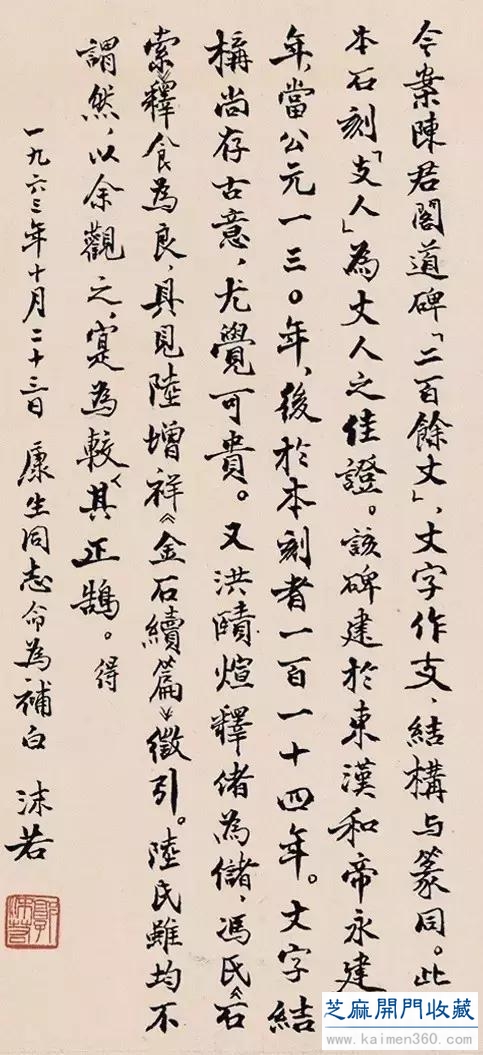 今案陳君閣道碑「二百餘丈」、丈字作支、結構与篆同。此
本石刻「支人」為丈人之佳證。該碑建於東漢和帝永建
年,當公元一三〇年,後於本刻者一百一十四年。文字結
構尚存古意,尤覺可貴。又洪頤煊釋偖為儲,馮氏《石
索》釋食為良,具見陸增祥《金石續篇》徵引。陸氏雖均不
謂然,以余觀之,寔為較其正鵠。得
一九六三年十月二十三日 康生同志命為補白 沫若
郭沫若
芝麻開門收藏
www.kaimen360.com